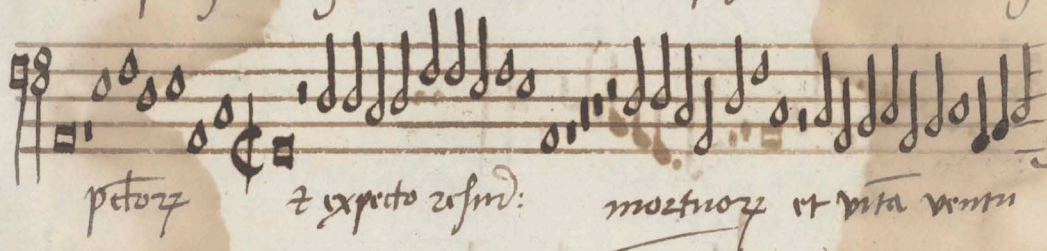 pctorꝝ ⁊ expecto resurr: mortuorꝝ et vitā ventu